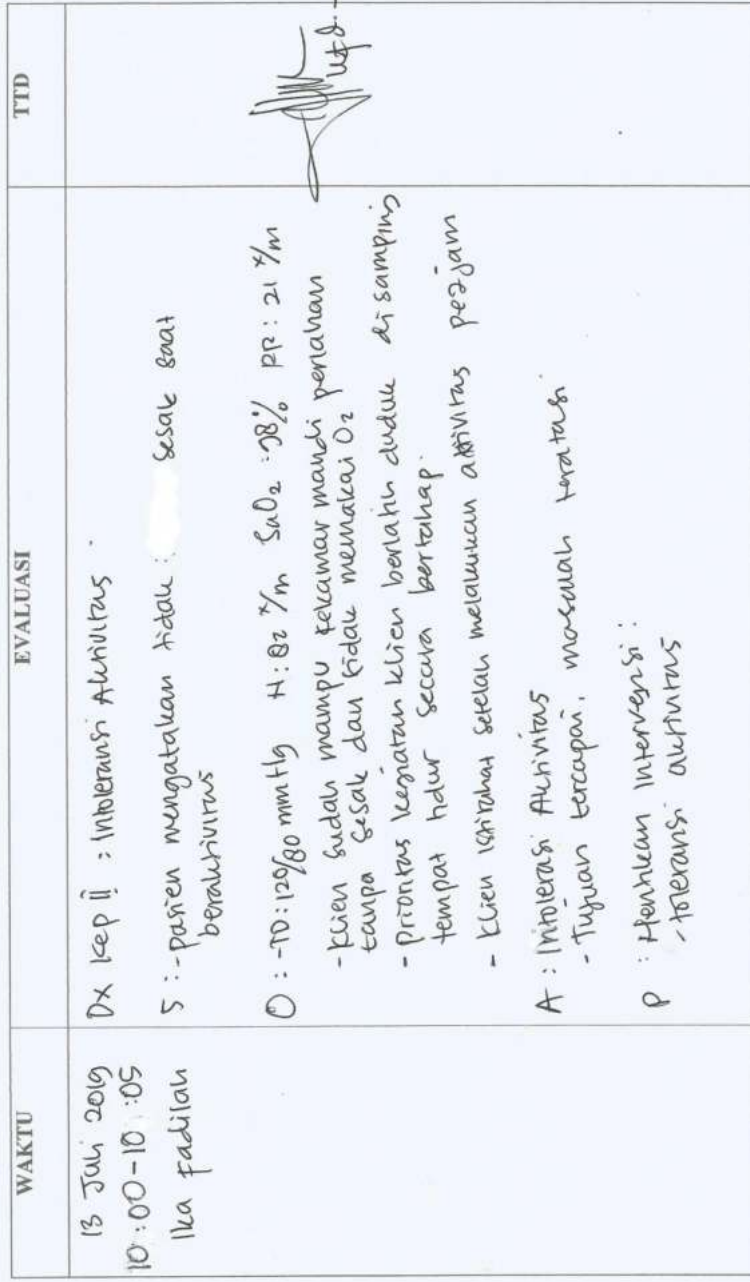 WAKTU
EVALUASI
TTD
13 Juli 2019
10:00-10:05
Ika Fadilah
Dx Kep II : Intoleransi Aktivitas
S : -pasien mengatakan tidak : sesak saat
beraktivitas
O : -TD: 120/80 mmHg N: 82 x/m SaO2 : 98% RR: 21 x/m
- Klien sudah mampu kekamar mandi perlahan
tanpa sesak dan tidak memakai O2
- prioritas kegiatan klien berlatih duduk disamping
tempat tidur secara bertahap.
- Klien istirahat setelah melakukan aktivitas per2jam
A : Intolerasi Aktivitas
- Tujuan tercapai, masalah teratasi
P : Hentikan Intervensi :
- toleransi aktivitas